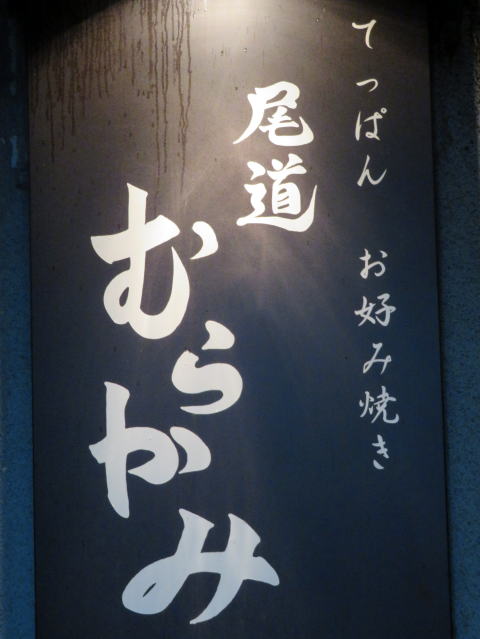 てっぱん お好み焼き
尾道
むらかみ